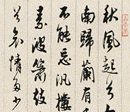 秋風起兮
南歸蘭有
不能忘汎樓
素波簫鼓
兮哀情多少